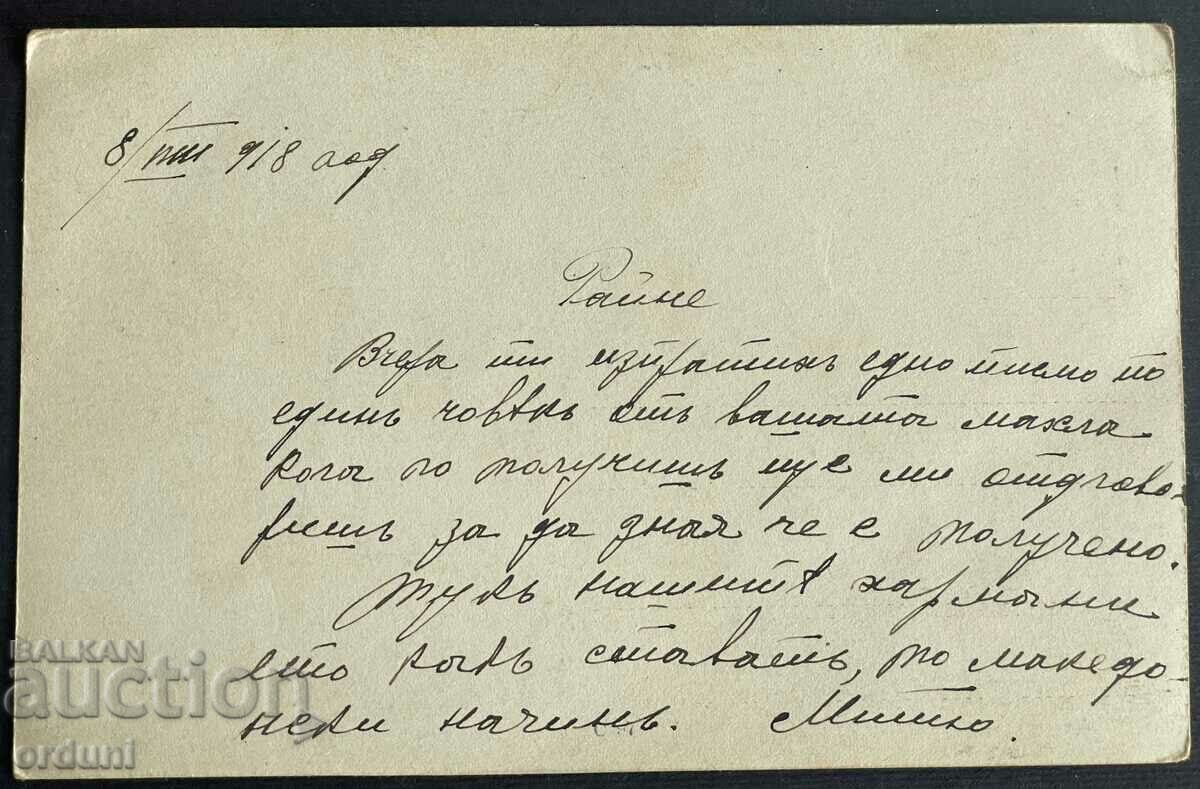 8/VIII 918 год.
Райне
Вчера ти изпратихъ едно писмо по
единъ човѣкъ отъ вашата махла
кога го получишъ ще ми отдгово-
ришъ за да зная че е получено.
Тукъ нашитѣ хармани
ето какъ ставатъ, по македо-
нски начинъ. Митю.
BALKAN
auction
orduni